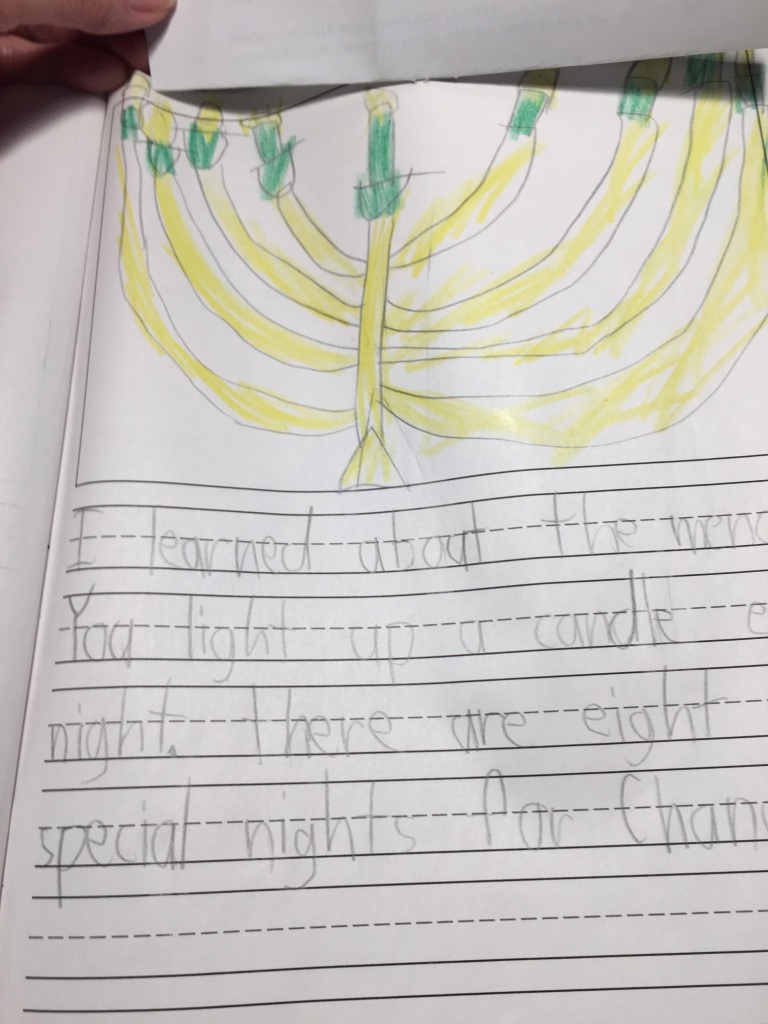 I learned about the meno
You light up a candle e
night. There are eight
special nights for Chanu